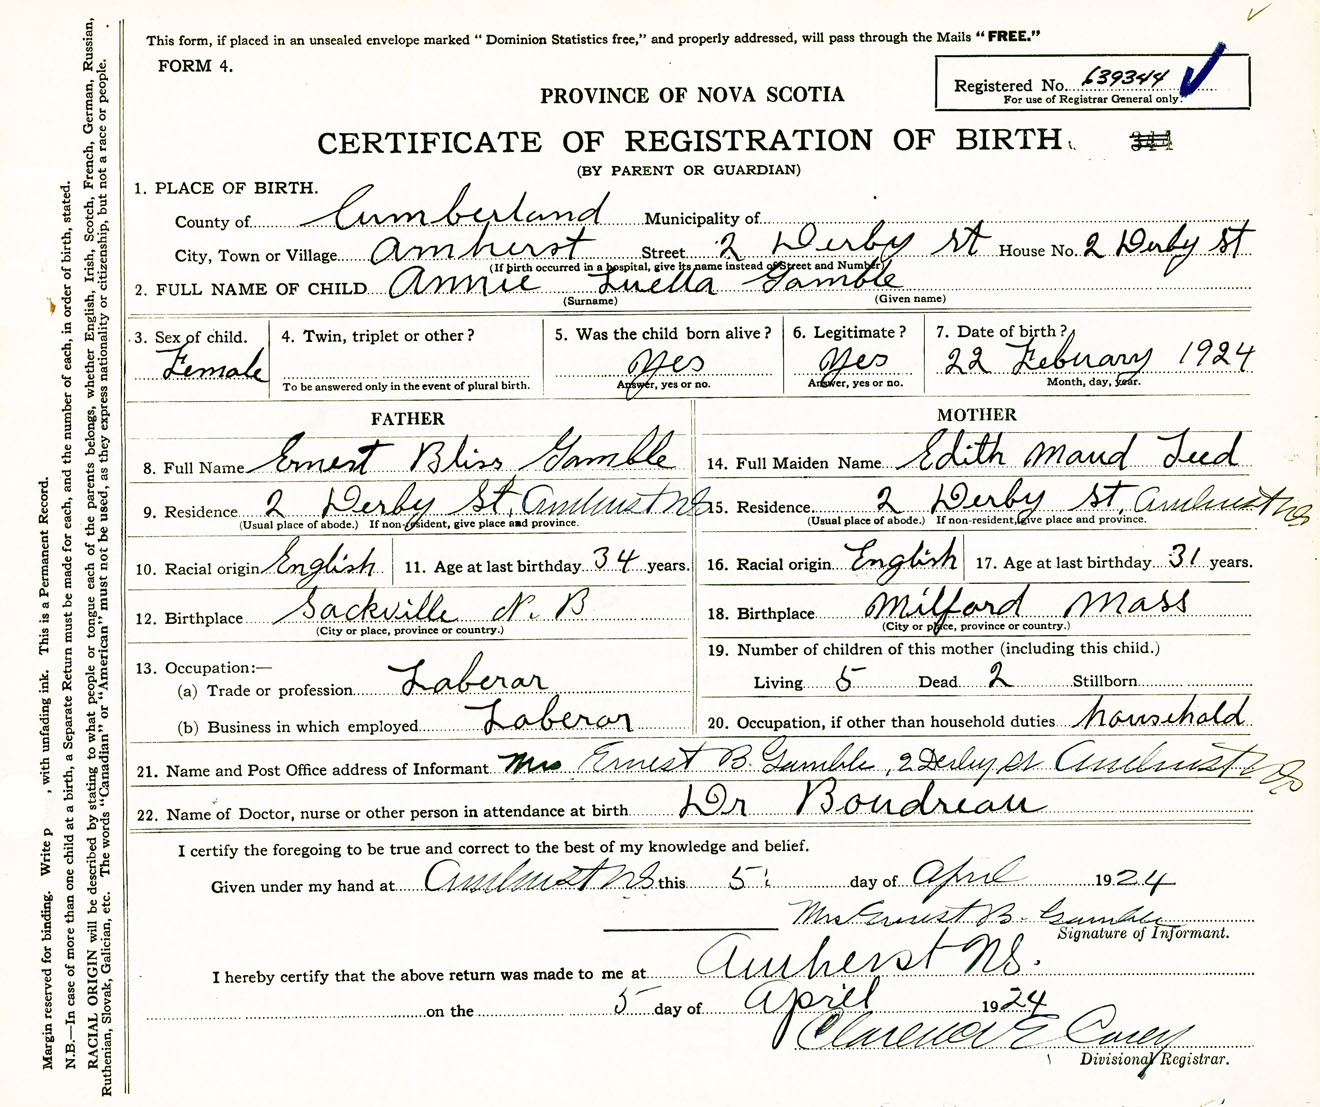 This form, if placed in an unsealed envelope marked "Dominion Statistics free," and properly addressed, will pass through the Mails "FREE."
FORM 4.
Registered No. 639344
For use of Registrar General only.
PROVINCE OF NOVA SCOTIA
CERTIFICATE OF REGISTRATION OF BIRTH.
344
(BY PARENT OR GUARDIAN)
1. PLACE OF BIRTH.
County of Cumberland Municipality of
City, Town or Village Amherst Street 2 Derby St House No. 2 Derby St
(If birth occurred in a hospital, give its name instead of Street and Number)
2. FULL NAME OF CHILD Annie Luella Gamble
(Surname) (Given name)
3. Sex of child. 4. Twin, triplet or other? 5. Was the child born alive? 6. Legitimate? 7. Date of birth?
Female yes yes 22 Feberary 1924
To be answered only in the event of plural birth. Answer, yes or no. Answer, yes or no. Month, day, year.
FATHER MOTHER
8. Full Name Ernest Bliss Gamble 14. Full Maiden Name Edith Maud Teed
9. Residence 2 Derby St, Amherst NS 15. Residence 2 Derby St, Amherst NS
(Usual place of abode.) If non-resident, give place and province. (Usual place of abode.) If non-resident, give place and province.
10. Racial origin English 11. Age at last birthday 34 years. 16. Racial origin English 17. Age at last birthday 31 years.
12. Birthplace Sackville N. B 18. Birthplace Milford Mass
(City or place, province or country.) (City or place, province or country.)
13. Occupation:— 19. Number of children of this mother (including this child.)
(a) Trade or profession Laberar Living 5 Dead 2 Stillborn
(b) Business in which employed Laberar 20. Occupation, if other than household duties household
21. Name and Post Office address of Informant Mrs Ernest B. Gamble, 2 Derby St Amherst NS
22. Name of Doctor, nurse or other person in attendance at birth Dr Boudreau
I certify the foregoing to be true and correct to the best of my knowledge and belief.
Given under my hand at Amherst NS this 5 day of April 1924
Mrs Ernest B. Gamble
Signature of Informant.
I hereby certify that the above return was made to me at Amherst NS.
on the 5 day of April 1924
Clarence E Casey
Divisional Registrar.
Margin reserved for binding. Write p , with unfading ink. This is a Permanent Record.
N.B.—In case of more than one child at a birth, a Separate Return must be made for each, and the number of each, in order of birth, stated.
RACIAL ORIGIN will be described by stating to what people or tongue each of the parents belongs, whether English, Irish, Scotch, French, German, Russian,
Ruthenian, Slovak, Galician, etc. The words "Canadian" or "American" must not be used, as they express nationality or citizenship, but not a race or people.